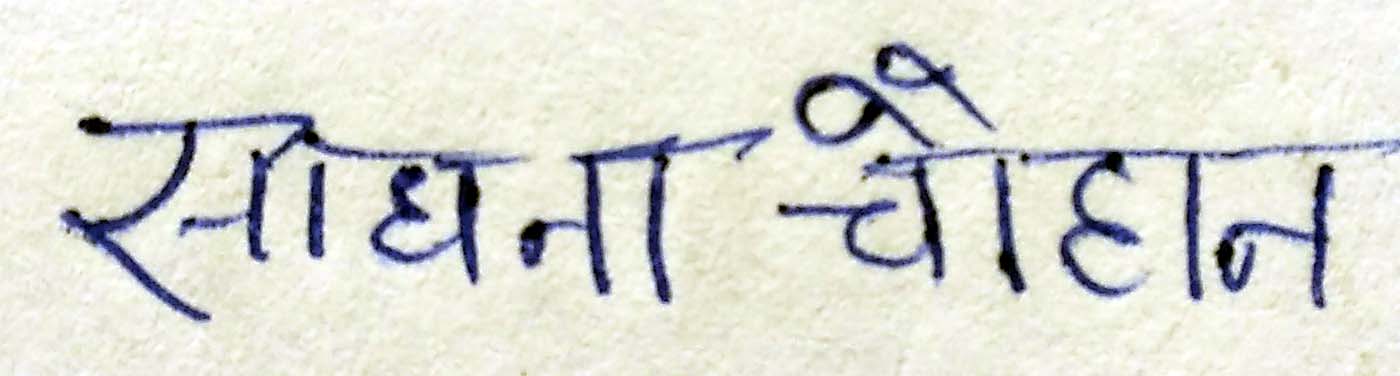 साधना चौहान